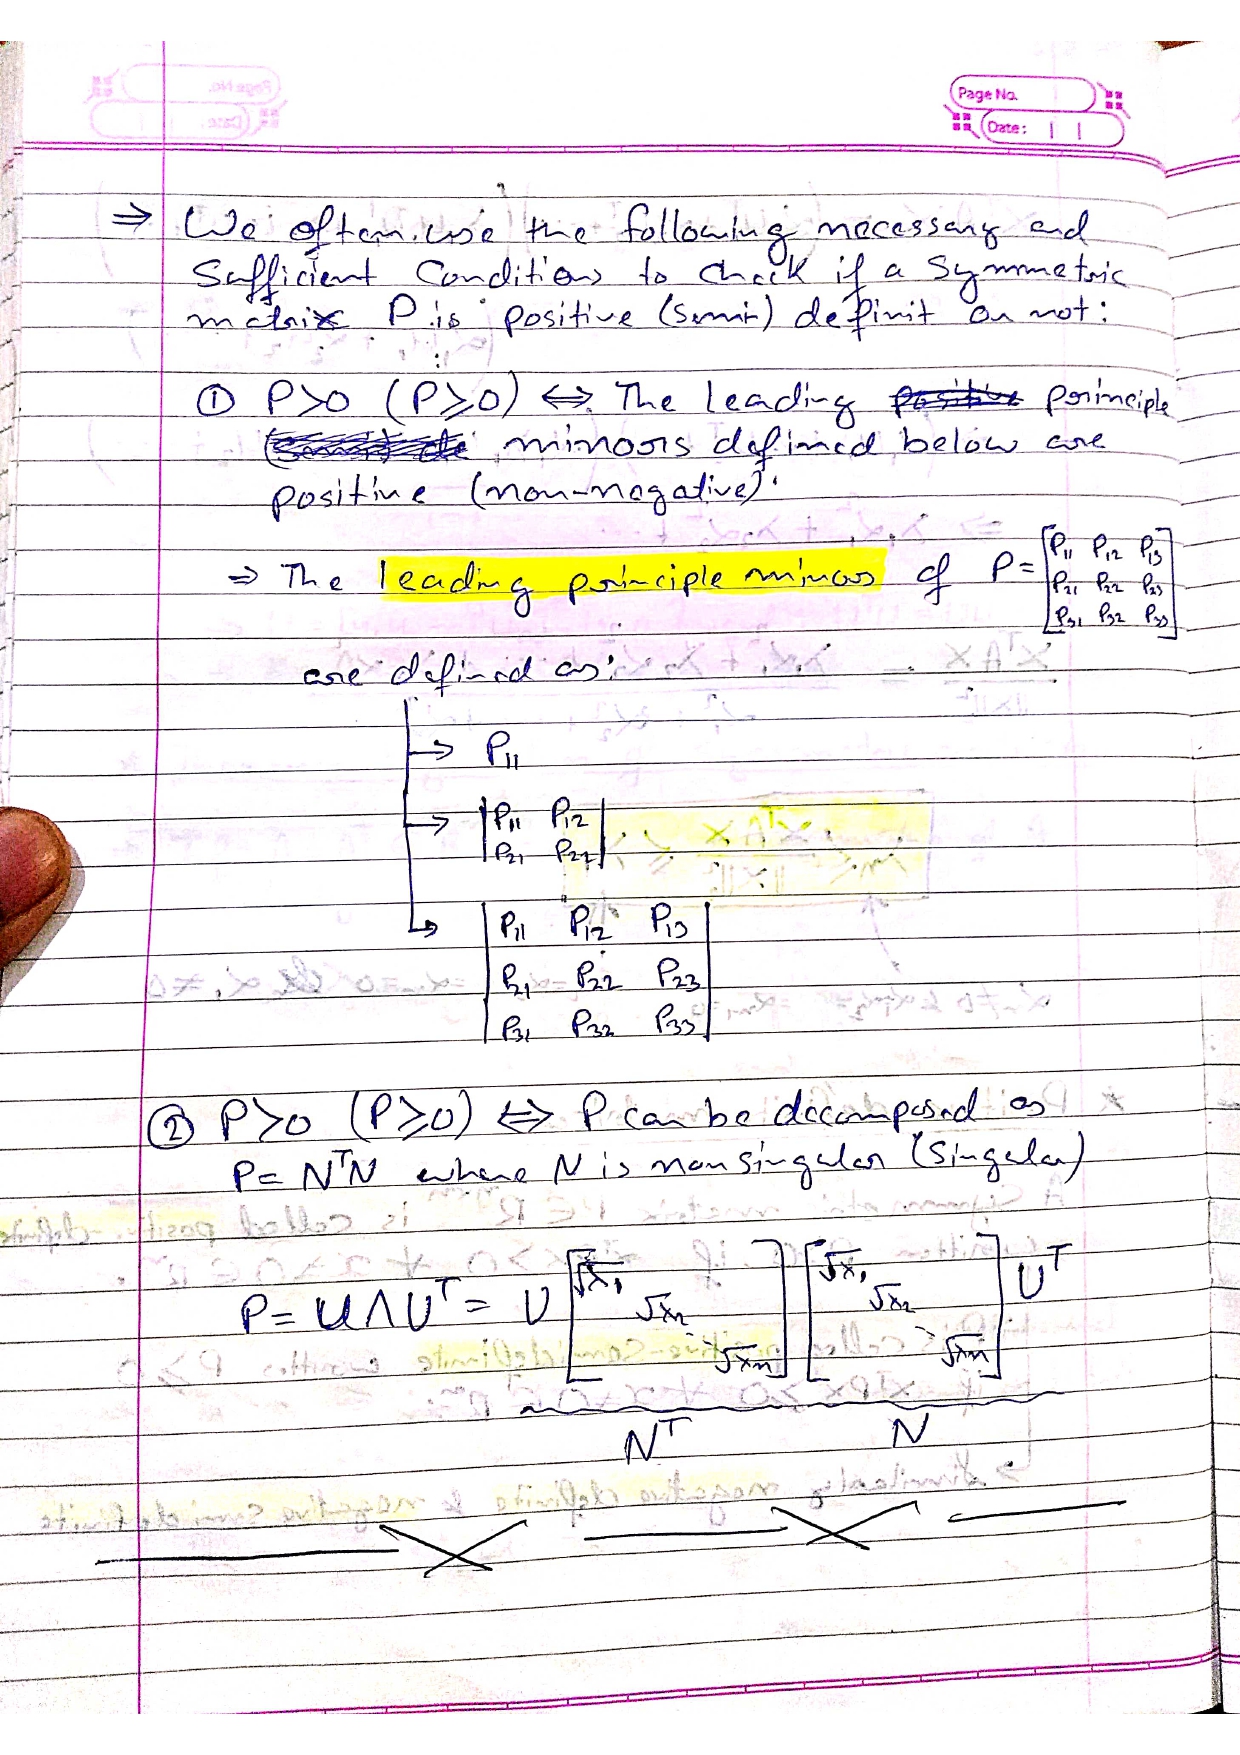 Page No.
Date:
⇒ We often use the following necessary and
Sufficient Conditions to check if a Symmetric
matrix P is positive (Semi) definit or not:
① P>0 (P≥0) ⇔ The leading principle
minors defined below are
positive (non-negative).
⇒ The leading principle minors of P = [P11 P12 P13
P21 P22 P23
P31 P32 P33]
are defined as:
→ P11
→ |P11 P12
P21 P22|
→ |P11 P12 P13
P21 P22 P23
P31 P32 P33|
② P>0 (P≥0) ⇔ P can be decomposed as
P = NᵀN where N is nonsingular (Singular)
P = UΛUᵀ = U [√λ1 √λ2 ⋱ √λn] [√λ1 √λ2 ⋱ √λn] Uᵀ
Nᵀ N